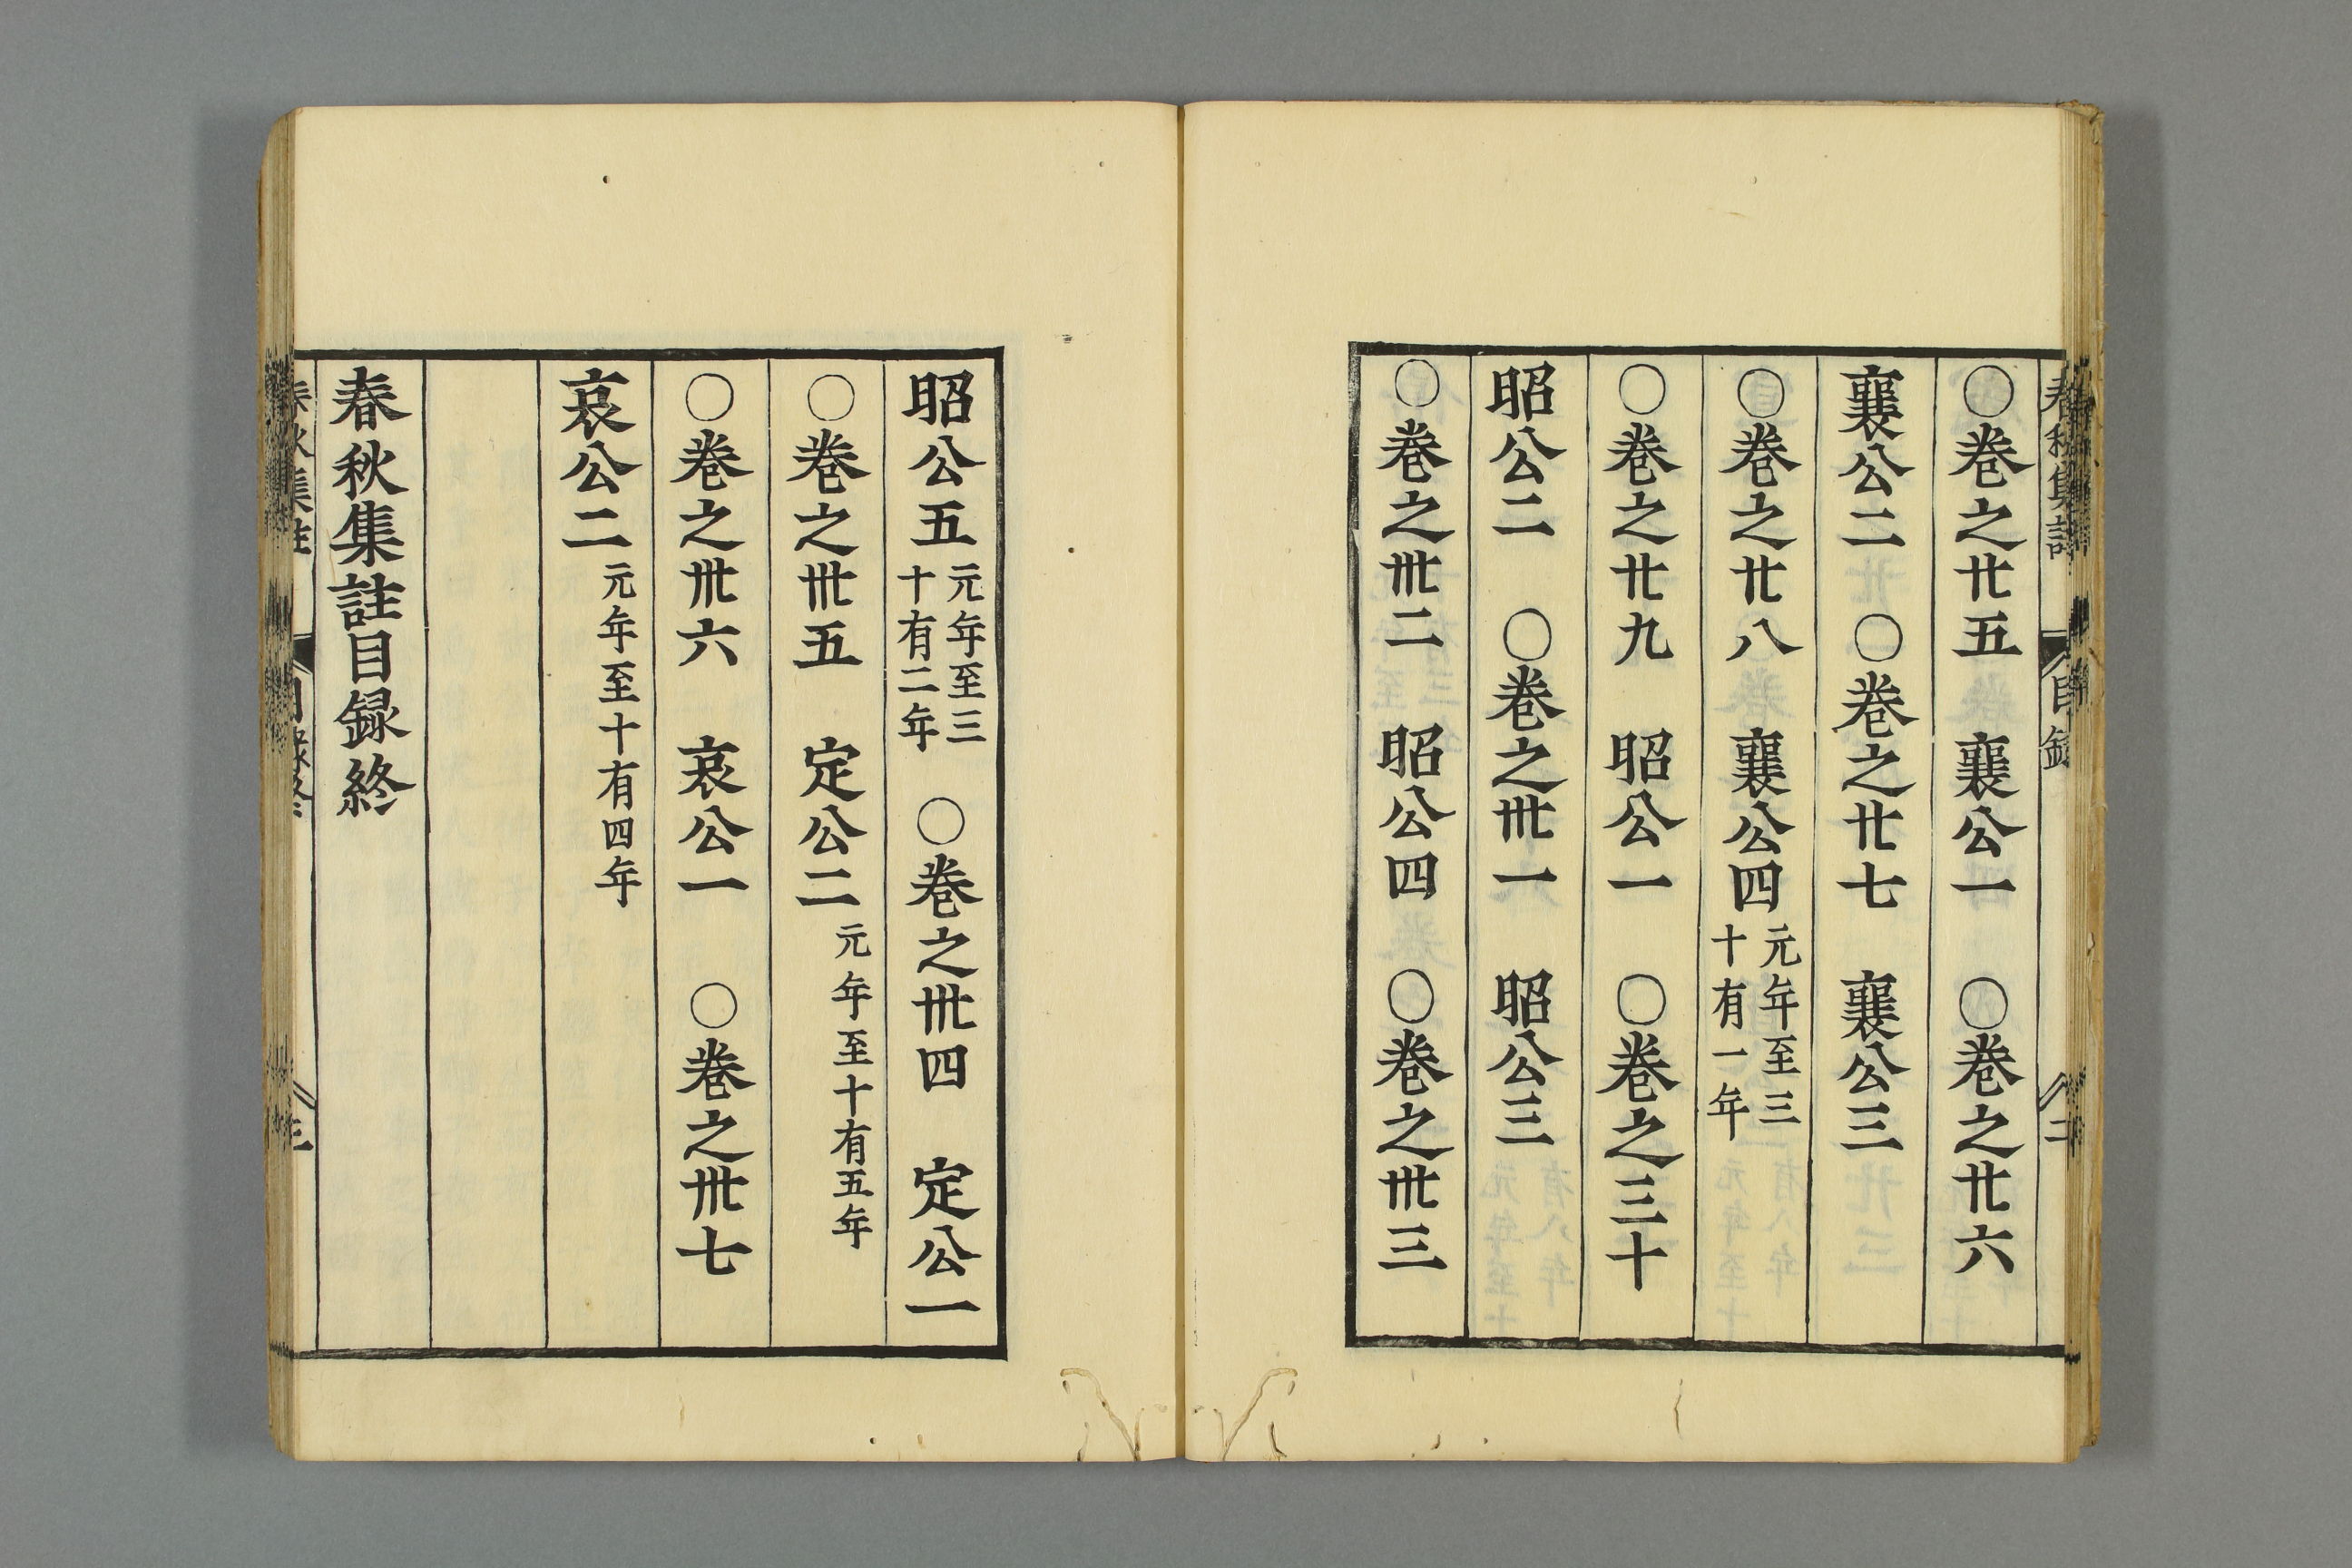 〇卷之廿五　襄公一　〇卷之廿六
襄公二　〇卷之廿七　襄公三
〇卷之廿八　襄公四元年至三十有一年
〇卷之廿九　昭公一　〇卷之三十
昭公二　〇卷之卅一　昭公三
〇卷之卅二　昭公四　〇卷之卅三
昭公五元年至三十有二年　〇卷之卅四　定公一
〇卷之卅五　定公二元年至十有五年
〇卷之卅六　哀公一　〇卷之卅七
哀公二元年至十有四年
春秋集註目録終